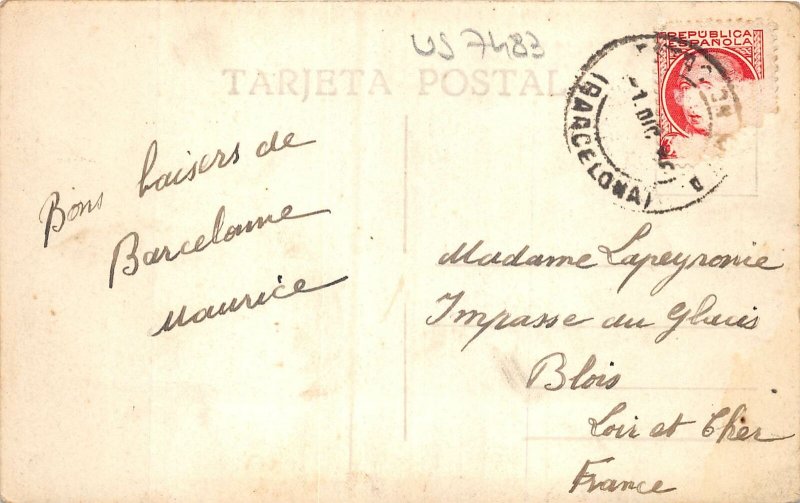 US 7483
TARJETA POSTAL
REPÚBLICA
ESPAÑOLA
1 DIC
(BARCELONA)
Bons baisers de
Barcelonne
Maurice
Madame Lapeyronie
Impasse du Glacis
Blois
Loir et Cher
France